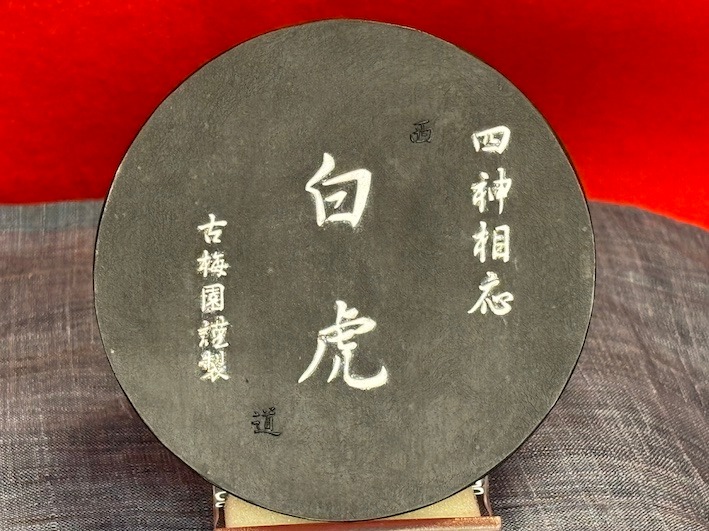 四神相応
白虎
古梅園謹製
道